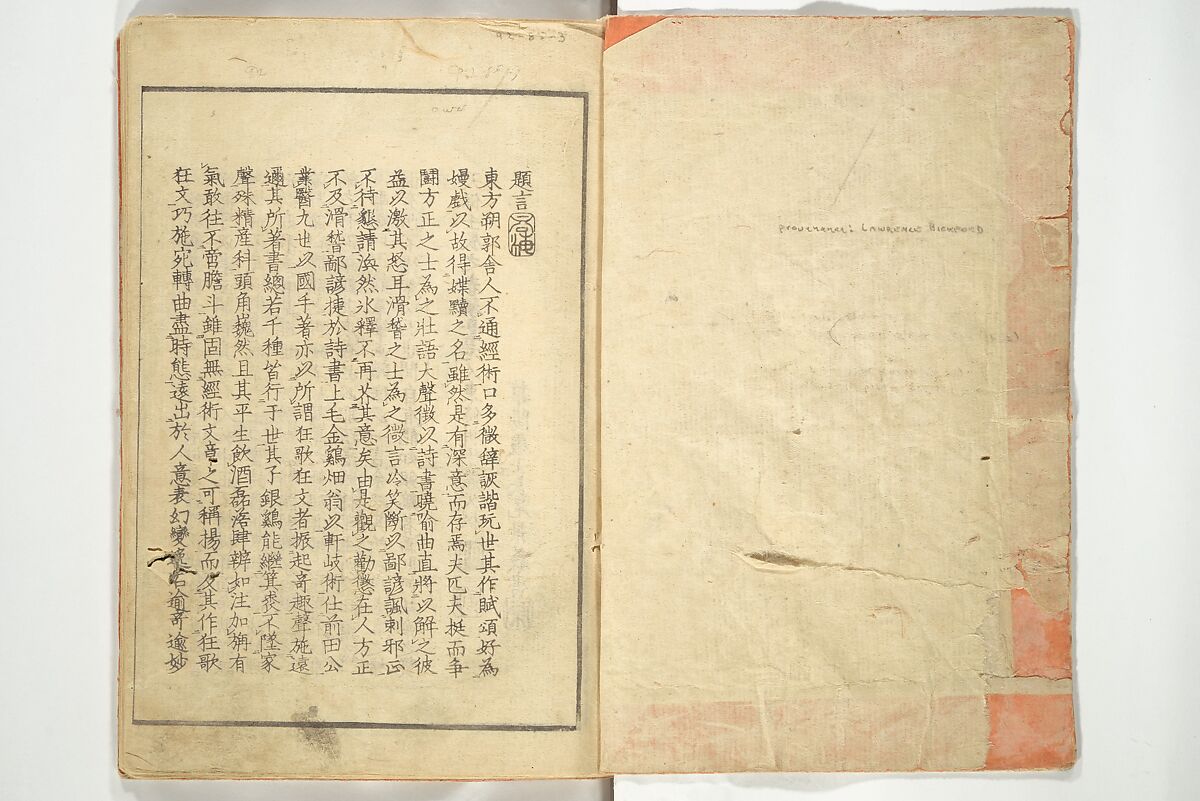 provenance: LAWRENCE BICKFORD
題言
東方朔郭舎人不通經術口多微辭詼諧玩世其作賦頌好為
嫚戲以故得媟黷之名雖然是有深意而存焉夫匹夫挺而争
鬪方正之士為之壯語大聲徴以詩書曉喻曲直將以解之彼
益以激其怒耳滑稽之士為之微言冷笑斷以鄙諺諷刺邪正
不待懇請渙然氷釋不再芥其意矣由是觀之勸懲在人方正
不及滑稽鄙諺捷於詩書上毛金鷄畑翁以軒岐術仕前田公
業醫九也以國手著亦以所謂狂歌狂文者振起奇趣聲施遠
邇其所著書總若干種皆行于世其子銀鷄能繼箕裘不墜家
聲殊精産科頭角巍然且其平生飲酒磊落肆辨如注加旃有
氣敢往不啻膽斗錐固無經術文章之可稱揚而及其作狂歌
狂文巧施宛轉曲盡時態遠出於人意表幻變 逾奇逾妙